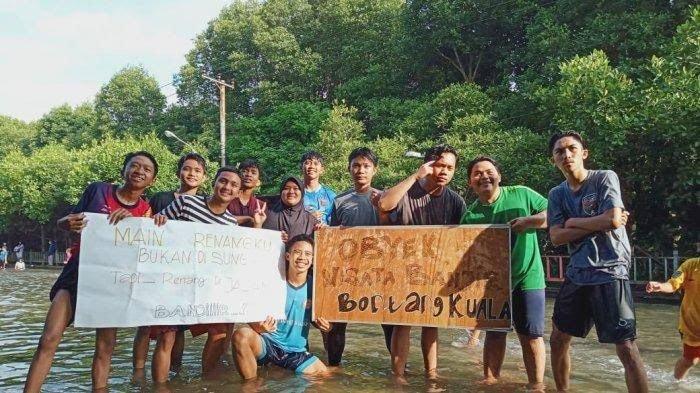 MAIN RENANGKU
BUKAN DI SUNG
Tapi_ Renang Di
OBYEK
WISATA BANJIR
BONTANG KUALA